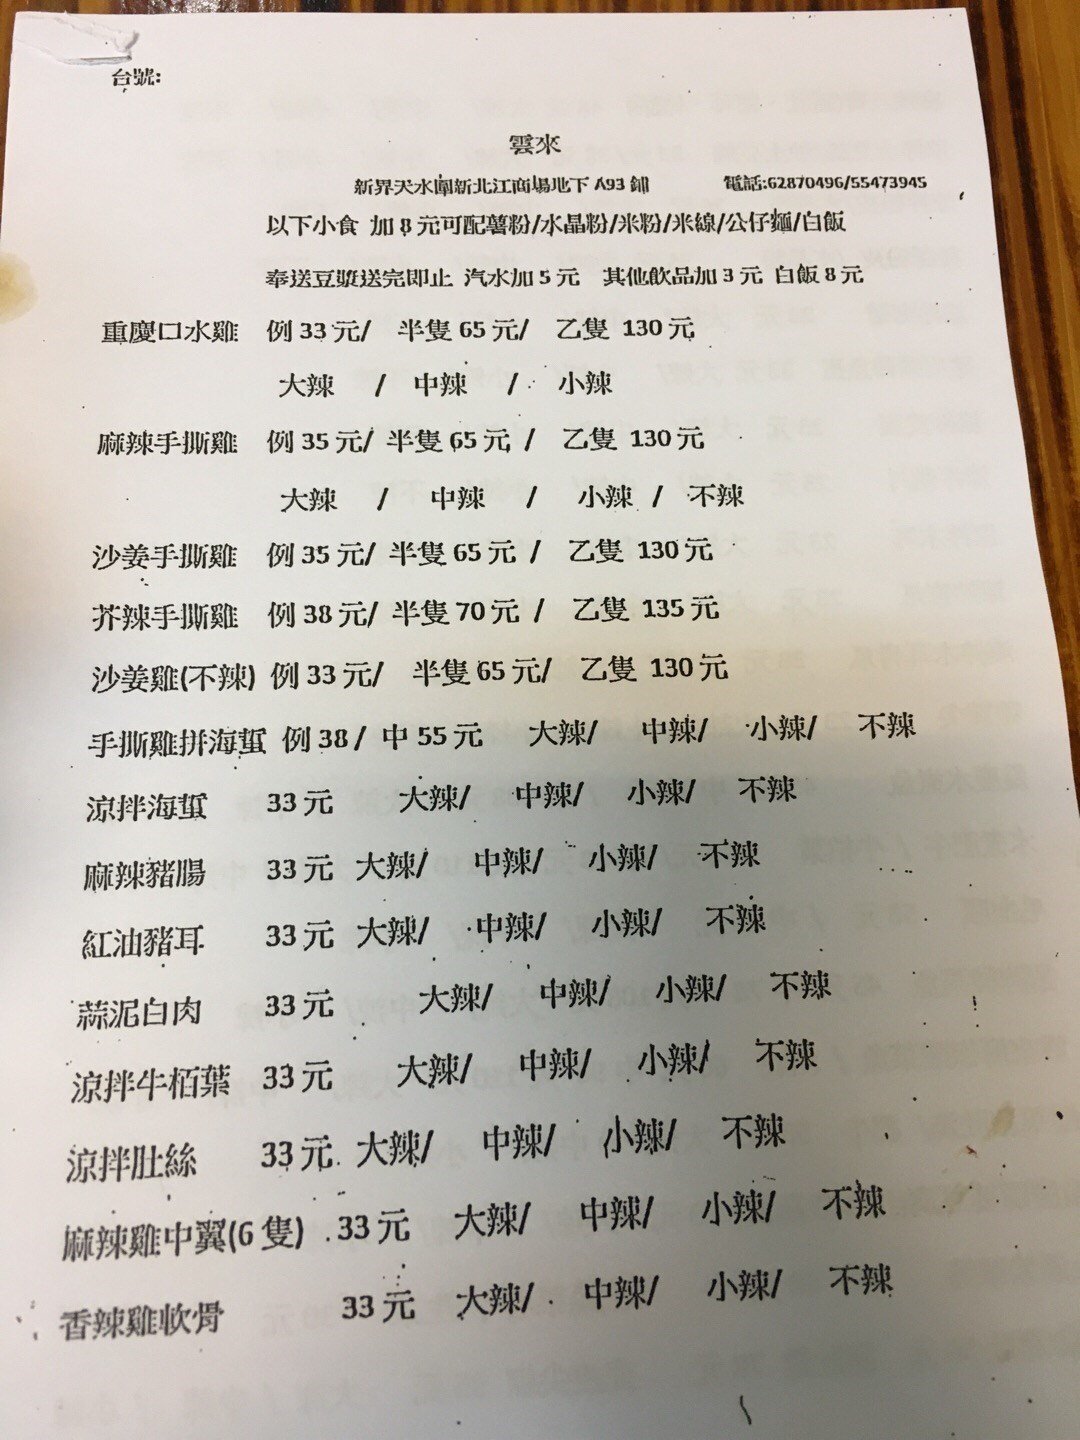 台號:
雲來
新界天水圍新北江商場地下 A93 鋪 電話:62870496/55473945
以下小食 加 8 元可配薯粉/水晶粉/米粉/米線/公仔麵/白飯
奉送豆漿送完即止 汽水加 5 元 其他飲品加 3 元 白飯 8 元
重慶口水雞 例 33 元/ 半隻 65 元/ 乙隻 130 元
大辣 / 中辣 / 小辣
麻辣手撕雞 例 35 元/ 半隻 65 元 / 乙隻 130 元
大辣 / 中辣 / 小辣 / 不辣
沙姜手撕雞 例 35 元/ 半隻 65 元 / 乙隻 130 元
芥辣手撕雞 例 38 元/ 半隻 70 元 / 乙隻 135 元
沙姜雞(不辣) 例 33 元/ 半隻 65 元/ 乙隻 130 元
手撕雞拼海蜇 例 38 / 中 55 元 大辣/ 中辣/ 小辣/ 不辣
涼拌海蜇 33 元 大辣/ 中辣/ 小辣/ 不辣
麻辣豬腸 33 元 大辣/ 中辣/ 小辣/ 不辣
紅油豬耳 33 元 大辣/ 中辣/ 小辣/ 不辣
蒜泥白肉 33 元 大辣/ 中辣/ 小辣/ 不辣
涼拌牛栢葉 33 元 大辣/ 中辣/ 小辣/ 不辣
涼拌肚絲 33 元 大辣/ 中辣/ 小辣/ 不辣
麻辣雞中翼(6 隻) 33 元 大辣/ 中辣/ 小辣/ 不辣
香辣雞軟骨 33 元 大辣/ 中辣/ 小辣/ 不辣